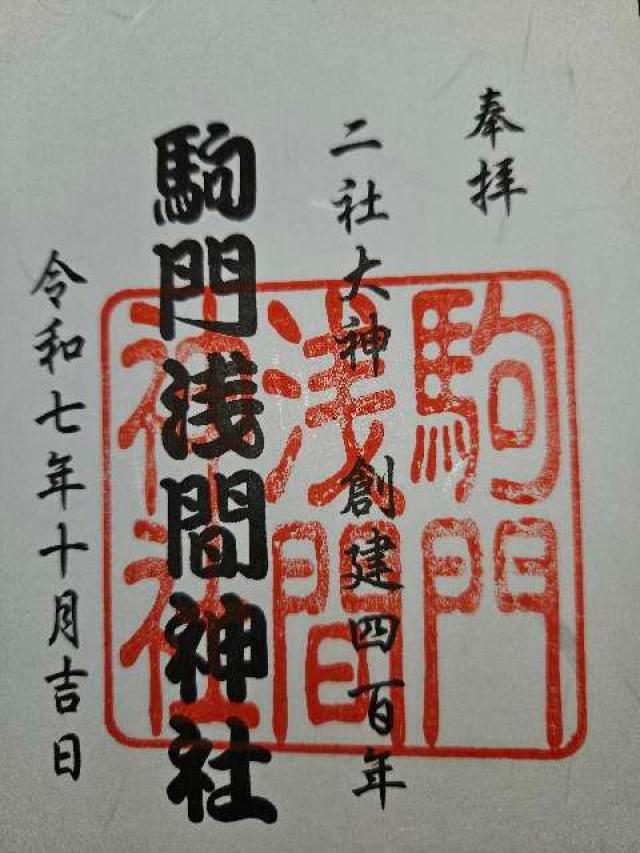 奉拝
二社大神 創建四百年
駒門浅間神社
令和七年十月吉日
駒門
浅間
神社